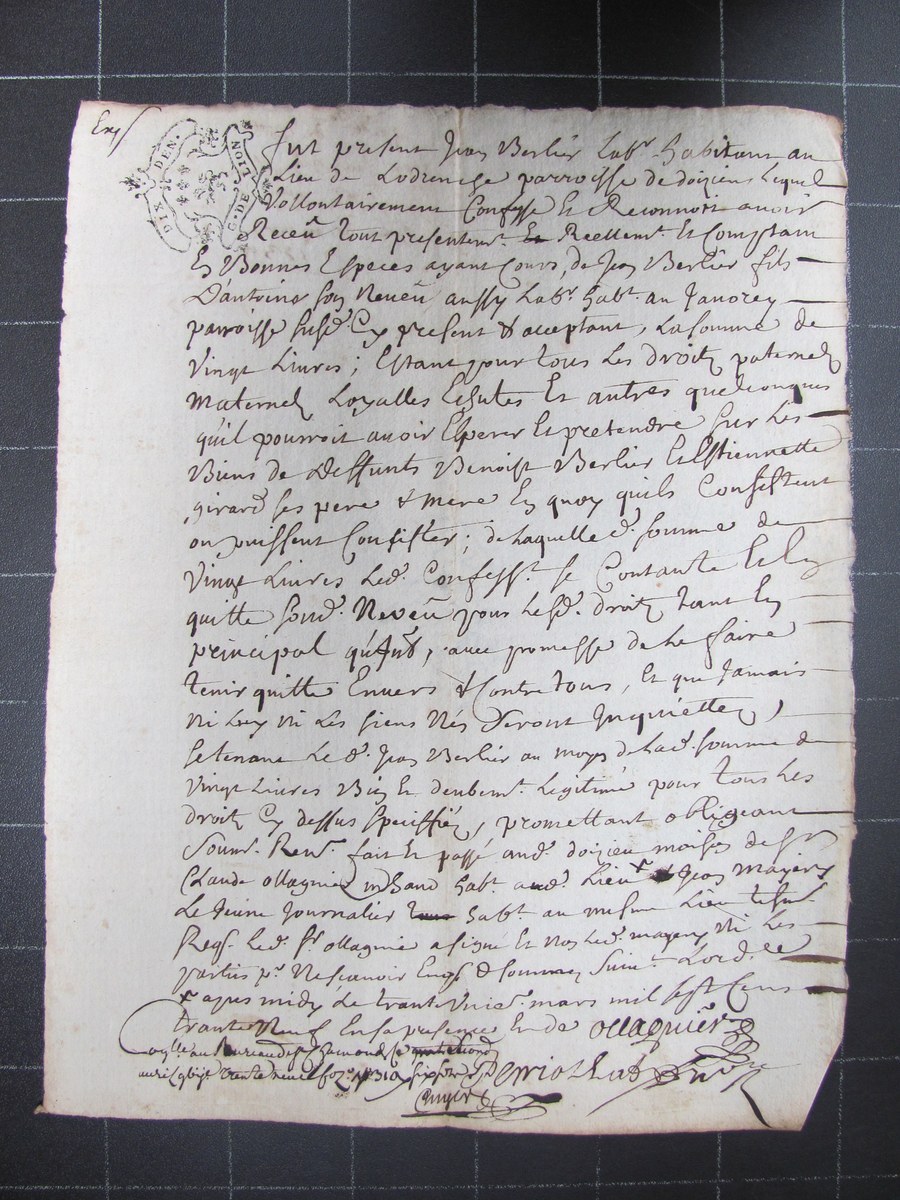 Exp
DIX DEN.
G. DE LION
fut present Jean Berlier Labr. habitant au
Lieu de parroisse de doizieu Lequel
Vollontairement Confesse Et Reconnoit avoir
Receu tout presentemt. Reellemt. Et Comptant
En Bonnes Especes ayant Cours, de Jean Berlier fils
D'antoine son Neveu aussy Labr. habt. au Janorey
parroisse susd. Cy present & acceptant, La somme de
Vingt Livres; Estant pour tous Les droitz paternelz
maternelz Loyalles Eschutes Et autres quelconques
qu'il pourroit avoir Esperer Et pretendre sur Les
Biens de deffunts Benoist Berlier Et Estiennette
girard ses pere & mere En quoy quils Consistent
ou puissent Consister; de Laquelle d. somme de
Vingt Livres Led. Confesst. se Contante Et En
quitte sond. Neveu pour Lesd. droitz tant En
principal qu'Jnts, avec promesse de Le faire
tenir quitte Envers & Contre tous, Et que Jamais
Ni Luy Ni Les siens N'en seront Jnquiettez,
se tenant Le d. Jean Berlier au moyen de Lad. somme de
Vingt Livres Bien Et deubemt. Legitimé pour tous Les
droitz Cy dessus speciffiéz, promettant obligeant
Soumt. Rent. fait Et passé aud. doizieu maison de sr
Claude ollagnier habt. aud. Lieu Jean
Le Jeune Journalier habt. au mesme Lieu tesm.
Reqs. Led. sr ollagnier a signé Et Non Led. Ni Les
parties pr. Ne scavoir Enqs & sommez suivt. Lord. Ce
apres midy Le trante Unie. mars mil sept Cens
trante Neuf En sa presence Et de ollagnier
au Bureau de st Chamond Le
avril 1739 trente neuf fo.